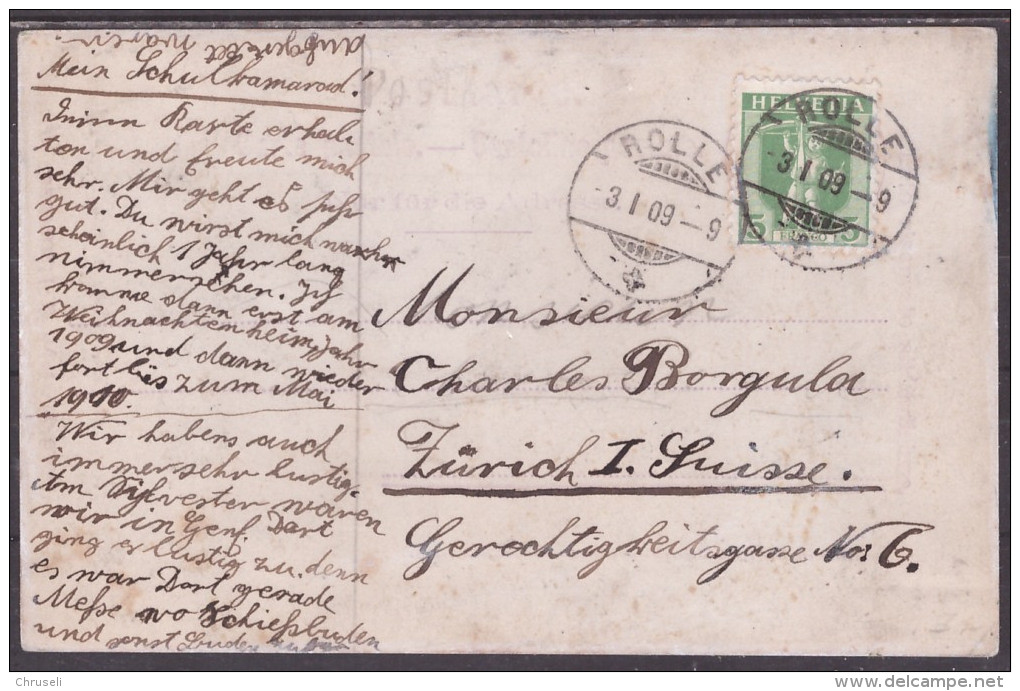 Mein Schulkamarad!
Karte erhal
ten und freute mich
sehr. Mir geht es sehr
gut. Du wirst mich warhr
scheinlich 1 Jahr lang
nimmersehen. Ich
komme dann erst am
Weihnachten heim, Jahr
1909 und dann wieder
fort bis zum Mai
1910.
Wir habens auch
immer sehr lustig.
Am Sylvester waren
wir in Genf. Dort
ging er lustig zu. denn
es war Dort gerade
Messe wo Schießbuden
und sonst Buden
aufgestellt waren.
HELVETIA
5 FRANCO 5
ROLLE
-3. I 09 -9
ROLLE
-3. I 09 -9
für die Adresse
Monsieur
Charles Borgula
Zürich I. Suisse.
Gerechtigkeitsgasse No: 6.
© Chruseli
www.delcampe.net